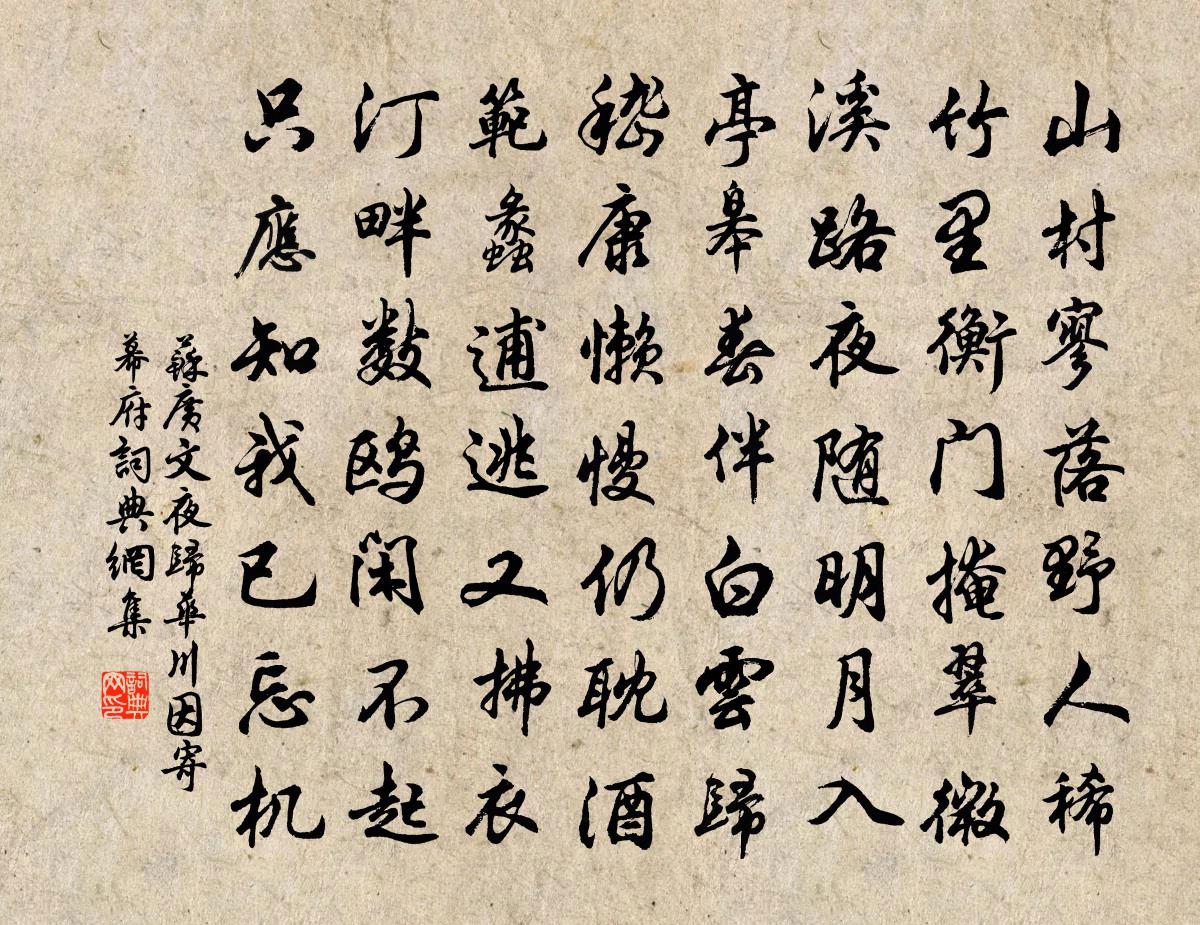 山村寥落野人稀
竹里衡门掩翠微
溪路夜随明月入
亭皋春伴白雲歸
嵇康懒慢仍耽酒
範蠡逋逃又拂衣
汀畔數鸥闲不起
只應知我已忘机
蘇廣文夜歸華川因寄
幕府詞典網集
詞典網印